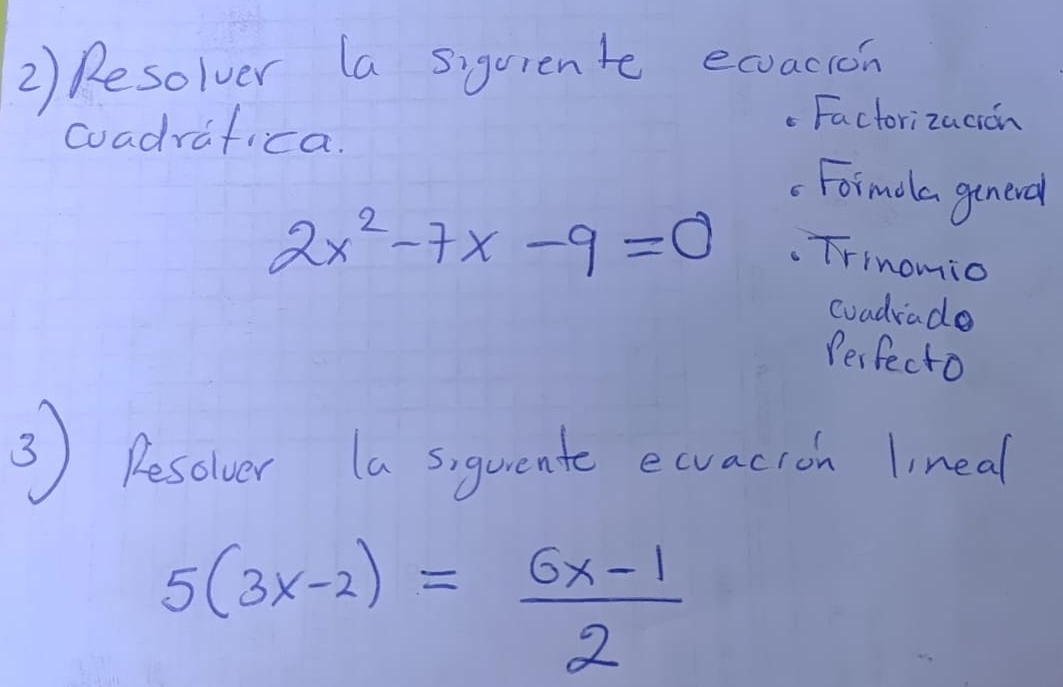 2) Resolver la siguiente ecuación
cuadrática.
• Factorización
• Fórmula general
• Trinomio
cuadrado
Perfecto
2x²-7x-9=0
3) Resolver la siguiente ecuación lineal
5(3x-2) = (6x-1)/2